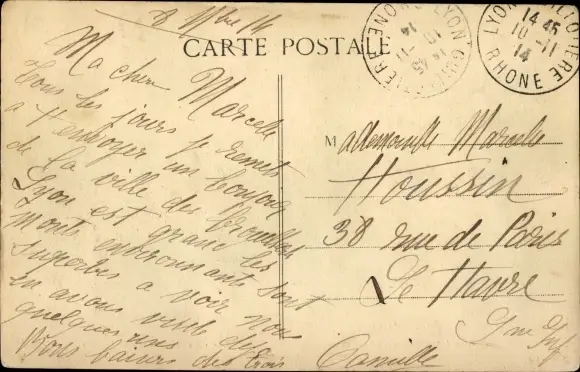 8 9bre 14
CARTE POSTALE
Ma chere Marcelle
Tous les jours je remets
a t'envoyer un bonjour
de la ville des brouillards
Lyon est grand les
Monts environnants sont
superbes a voir nous
en avons visité deja
quelques uns
Bons baisers des trois
Camille
LYON
14 45
10 - 11
14
RHONE
LYON
14 45
10 - 11
14
RHONE
Mademoiselle Marcelle
Houssin
38 rue de Paris
Le Havre
Sne Infre